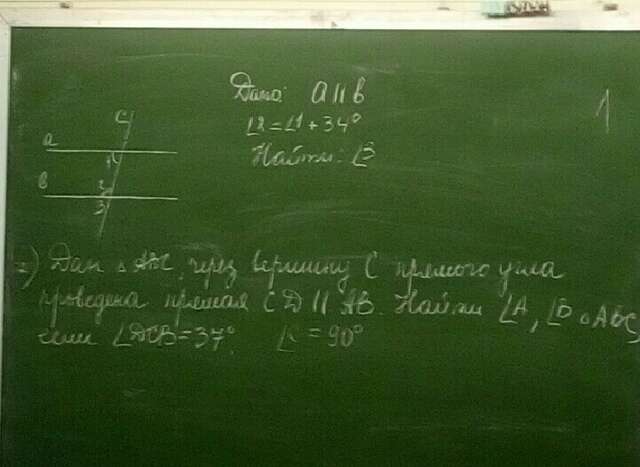 1
Дано: a || b
∠2=∠1+34°
Найти: ∠3
c
a
1
b
2
3
2) Дан △ ABC, через вершину C прямого угла
проведена прямая CD || AB. Найти ∠A, ∠B △ABC,
если ∠DCB=37°, ∠C=90°